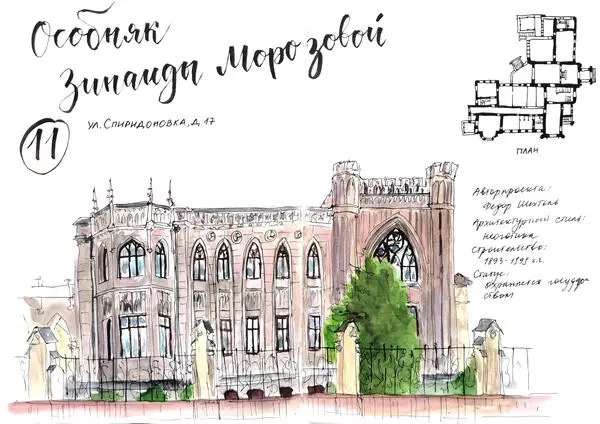 Особняк
Зинаиды Морозовой
11
ул. Спиридоновка, д. 17
план
Автор проекта:
Федор Шехтель
Архитектурный стиль:
неоготика
Строительство:
1893-1898 г.г.
Статус:
охраняется государ
ством